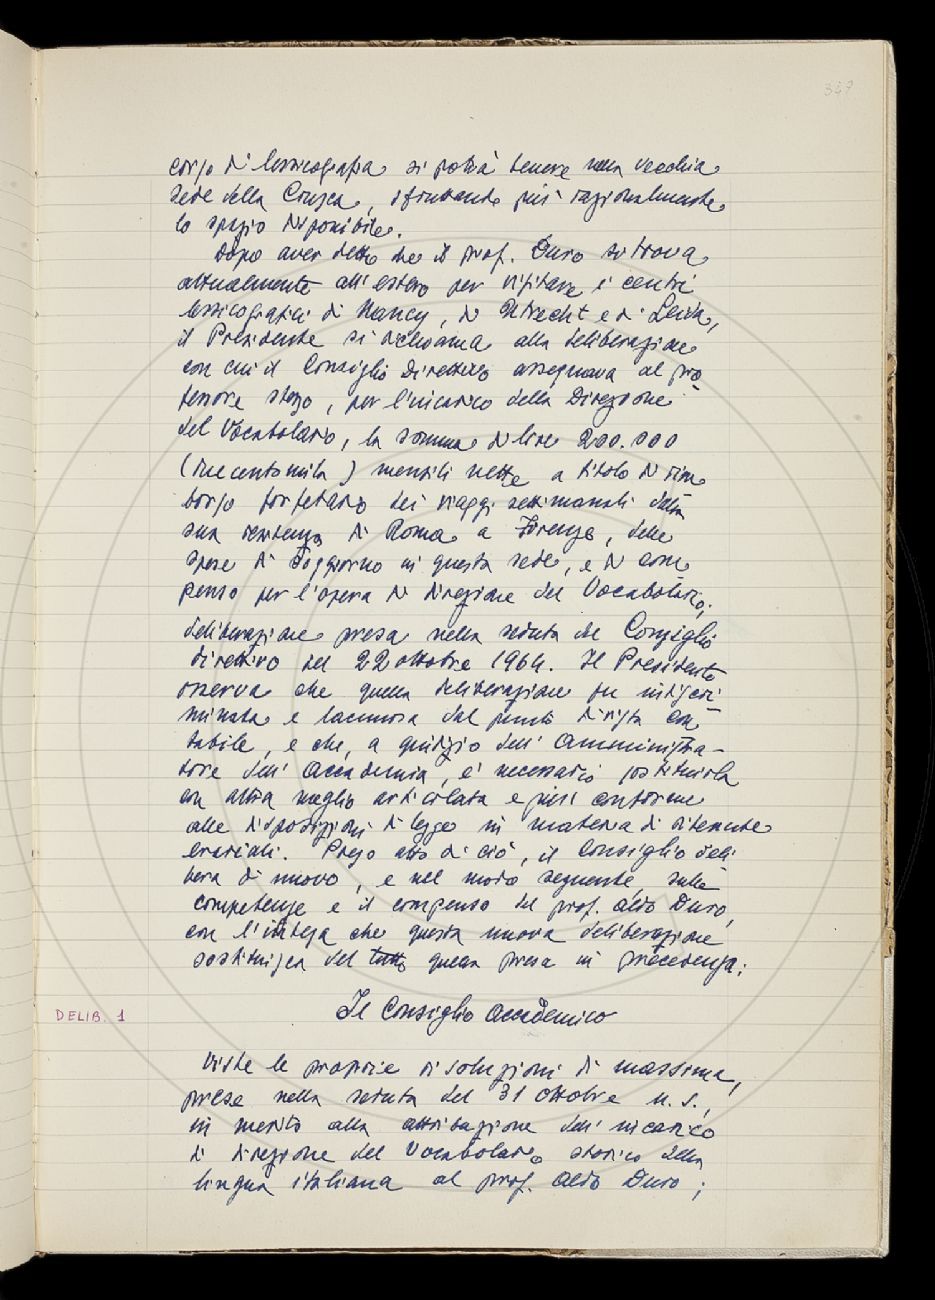 367
corso di lessicografia si potrà tenere nella vecchia
sede della Crusca, sfruttando più razionalmente
lo spazio disponibile.
Dopo aver detto che il prof. Duro si trova
attualmente all'estero per visitare i centri
lessicografici di Nancy, di Utrecht e di Leida,
il Presidente si richiama alla deliberazione
con cui il Consiglio Direttivo assegnava al pro
fessore stesso, per l'incarico della Direzione
del Vocabolario, la somma di lire 200.000
(duecentomila) mensili nette a titolo di rim
borso forfetario dei viaggi settimanali dalla
sua residenza di Roma a Firenze, delle
spese di soggiorno in questa sede, e di com
penso per l'opera di direzione del Vocabolario;
deliberazione presa nella seduta del Consiglio
direttivo del 22 ottobre 1964. Il Presidente
osserva che quella deliberazione fu indiscri
minata e lacunosa dal punto di vista con
tabile, e che, a giudizio dell'Amministra-
tore dell'Accademia, è necessario sostituirla
con altra meglio articolata e più conforme
alle disposizioni di legge in materia di ritenute
erariali. Preso atto di ciò, il Consiglio deli
bera di nuovo, e nel modo seguente, sulle
competenze e il compenso del prof. Aldo Duro,
con l'intesa che questa nuova deliberazione
sostituisca del tutto quella presa in precedenza:
DELIB. 1
Il Consiglio Accademico
viste le proprie risoluzioni di massima,
prese nella seduta del 31 ottobre u.s.,
in merito alla attribuzione dell'incarico
di direzione del Vocabolario storico della
lingua italiana al prof. Aldo Duro;